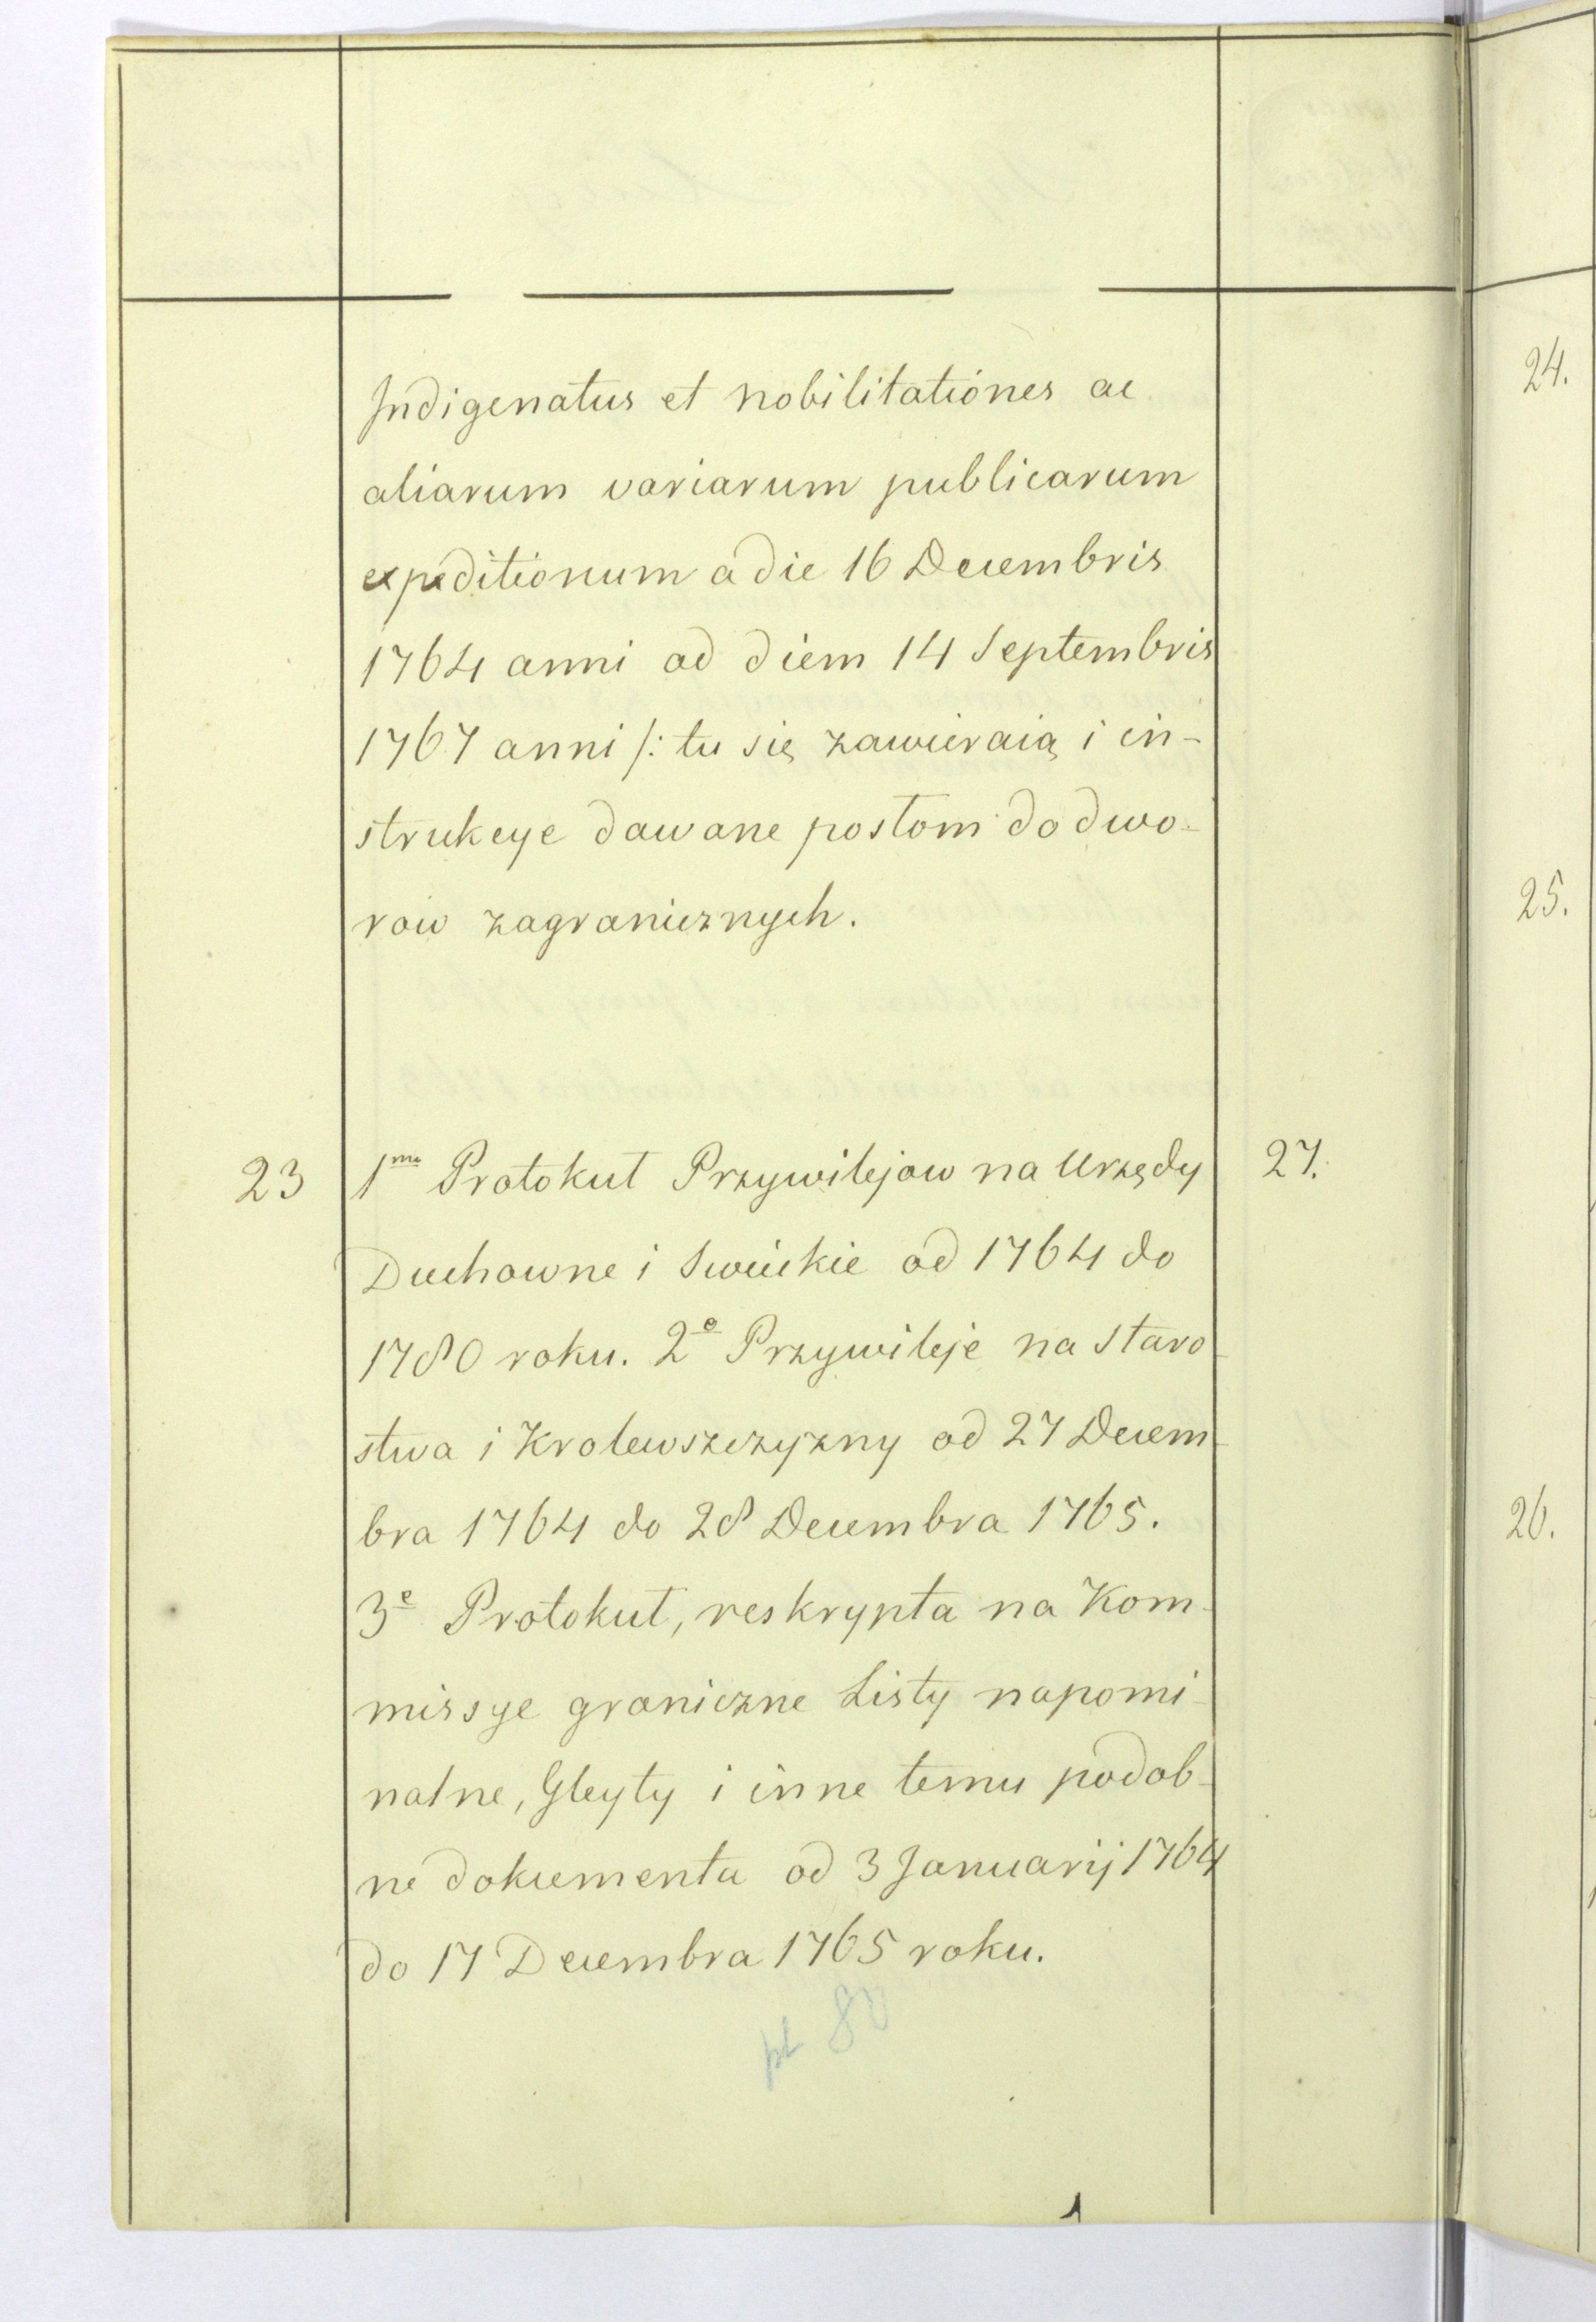 Indigenatus et nobilitationes ac
aliarum variarum publicarum
expeditionum a die 16 Decembris
1764 anni ad diem 14 Septembris
1767 anni /: tu się zawieraią i in-
strukcye dawane posłom do dwo-
row zagranicznych.
23 1mo Protokuł Przywilejow na Urzędy 27.
Duchowne i Swieckie od 1764 do
1780 roku. 2o Przywileje na Staro-
stwa i Krolewszczyzny od 27 Decem-
bra 1764 do 28 Decembra 1765.
3e Protokuł, reskrypta na Kom-
missye graniczne Listy napomi-
nalne, Gleyty i inne temu podob-
ne dokumenta od 3 Januarij 1764
do 17 Decembra 1765 roku.
pt 80
24.
25.
26.